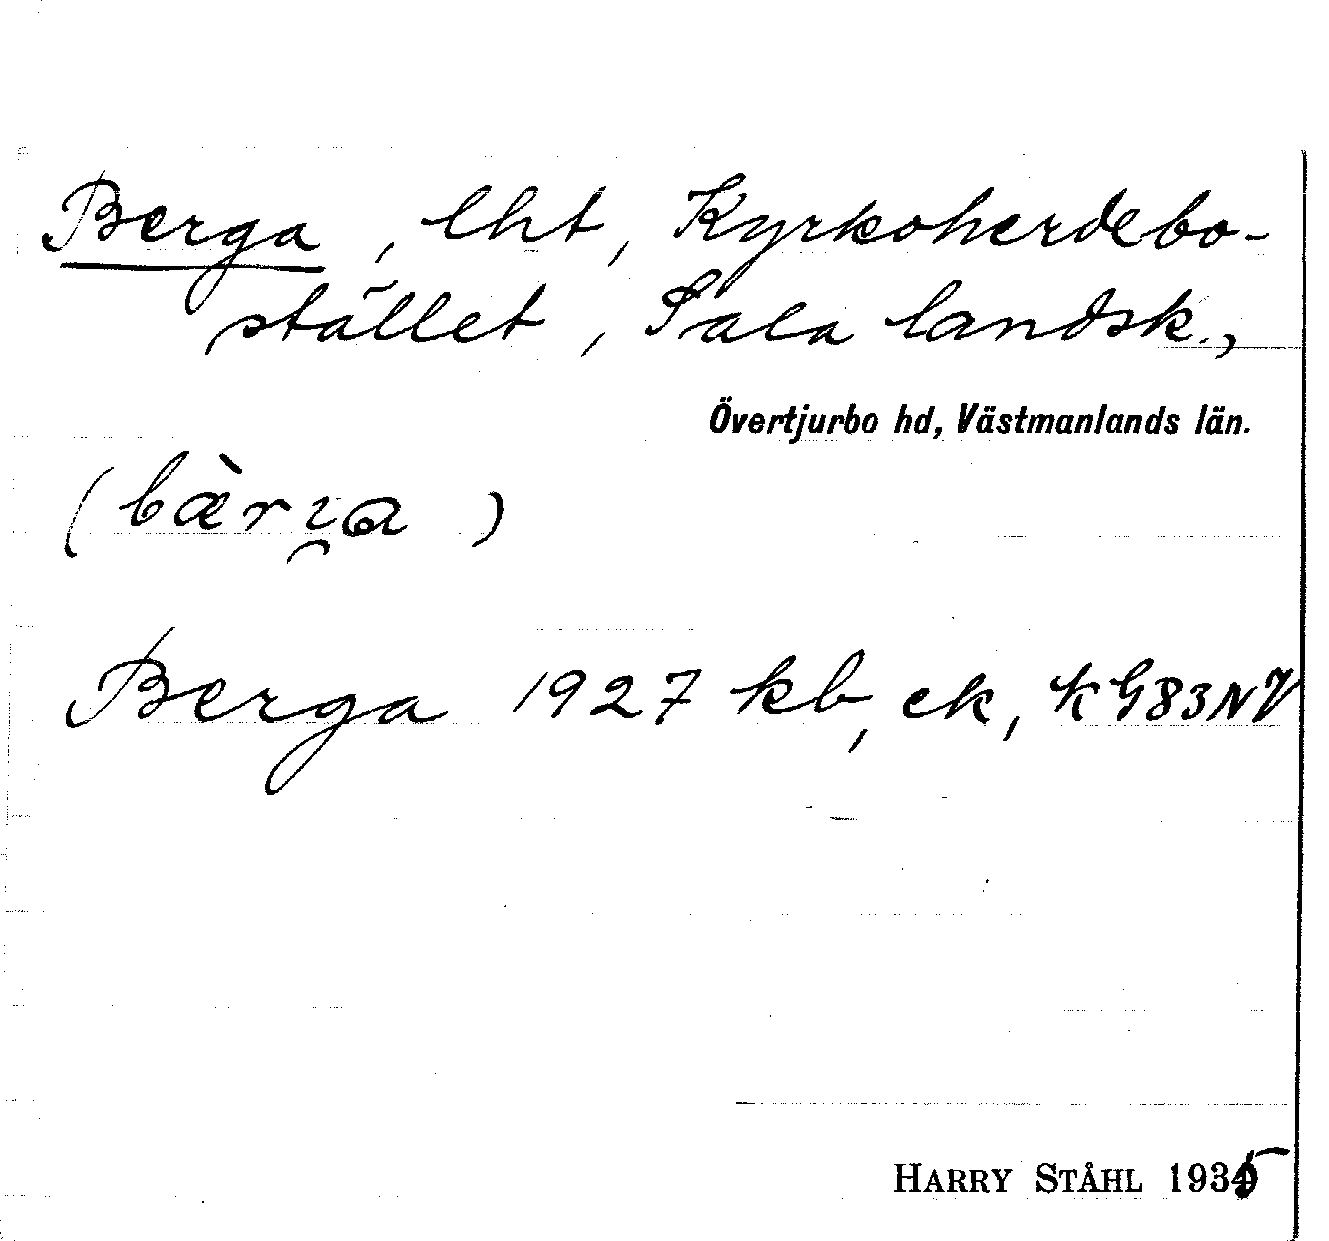 Berga, lht, Kyrkoherdebo-
stället, Sala landsk.,
Övertjurbo hd, Västmanlands län.
(bæ̀rı̯a)
Berga 1927 kb, ek, KG83NV
HARRY STÅHL 1935